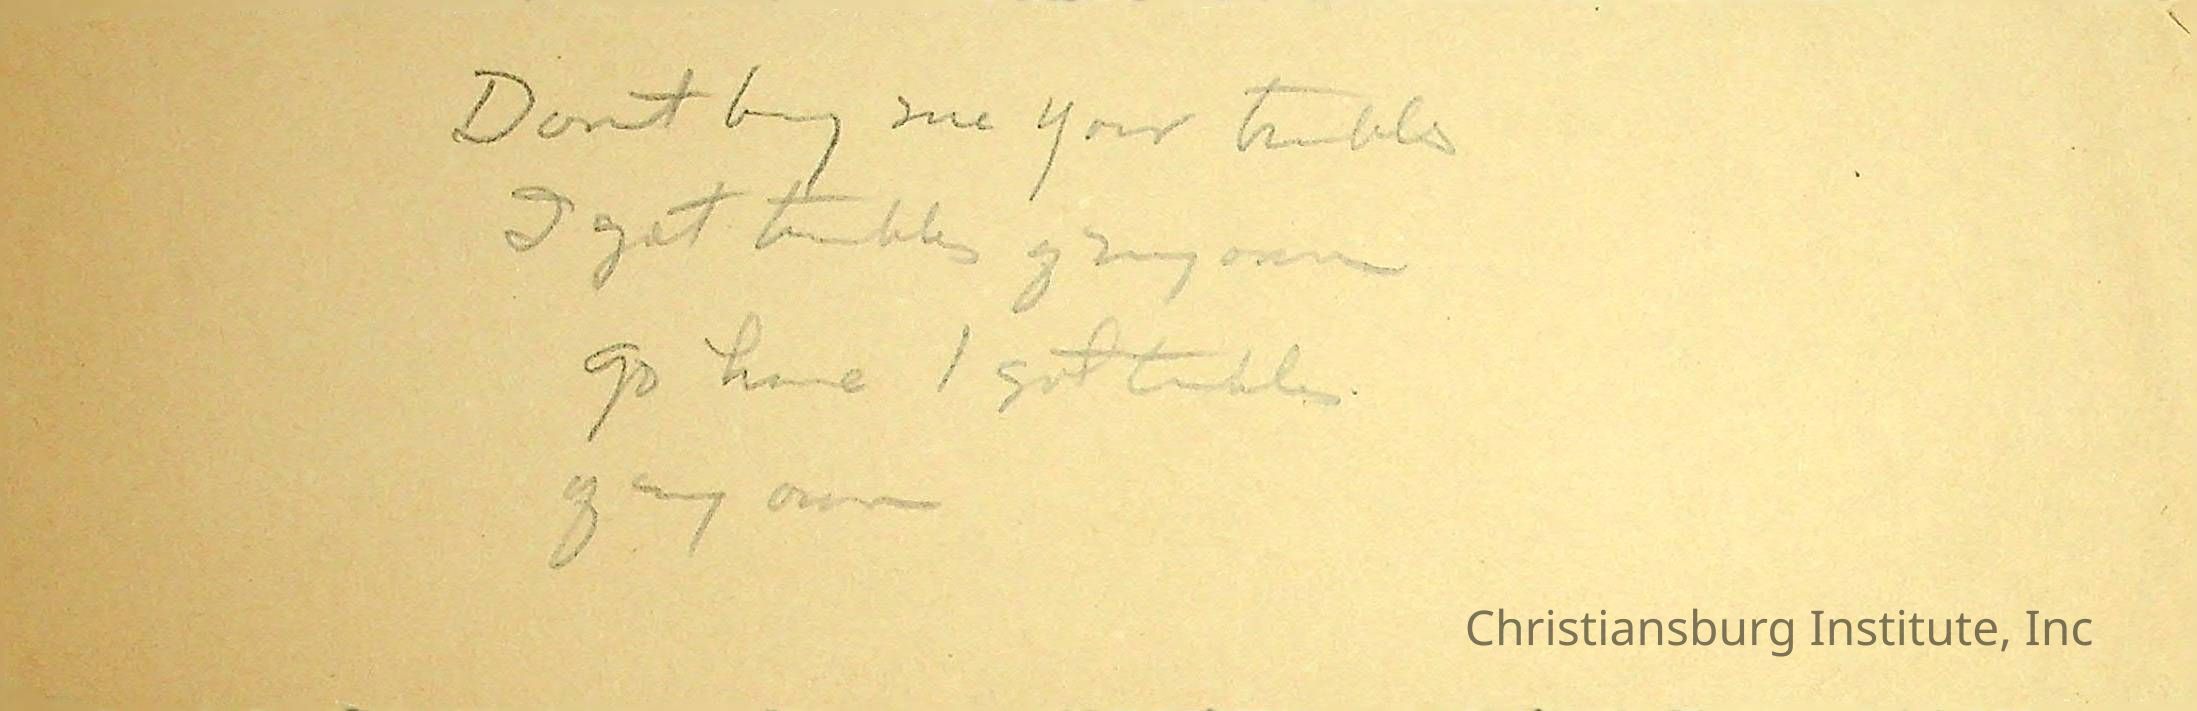 Don't bring me your troubles
I got troubles of my own
go home I got troubles
of my own
Christiansburg Institute, Inc